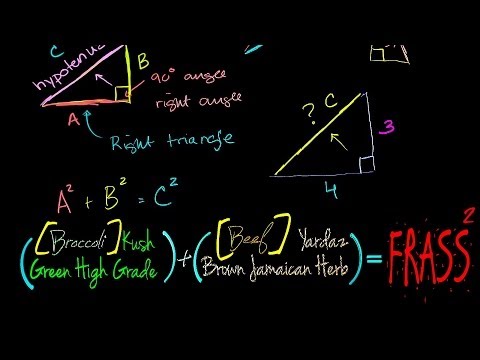 C
hypotenuse
B
90° angle
right angle
A
Right triangle
? C
3
4
A² + B² = C²
([Broccoli] Kush
Green High Grade) + ([Beef] Yardaz
Brown Jamaican Herb) = FRASS²